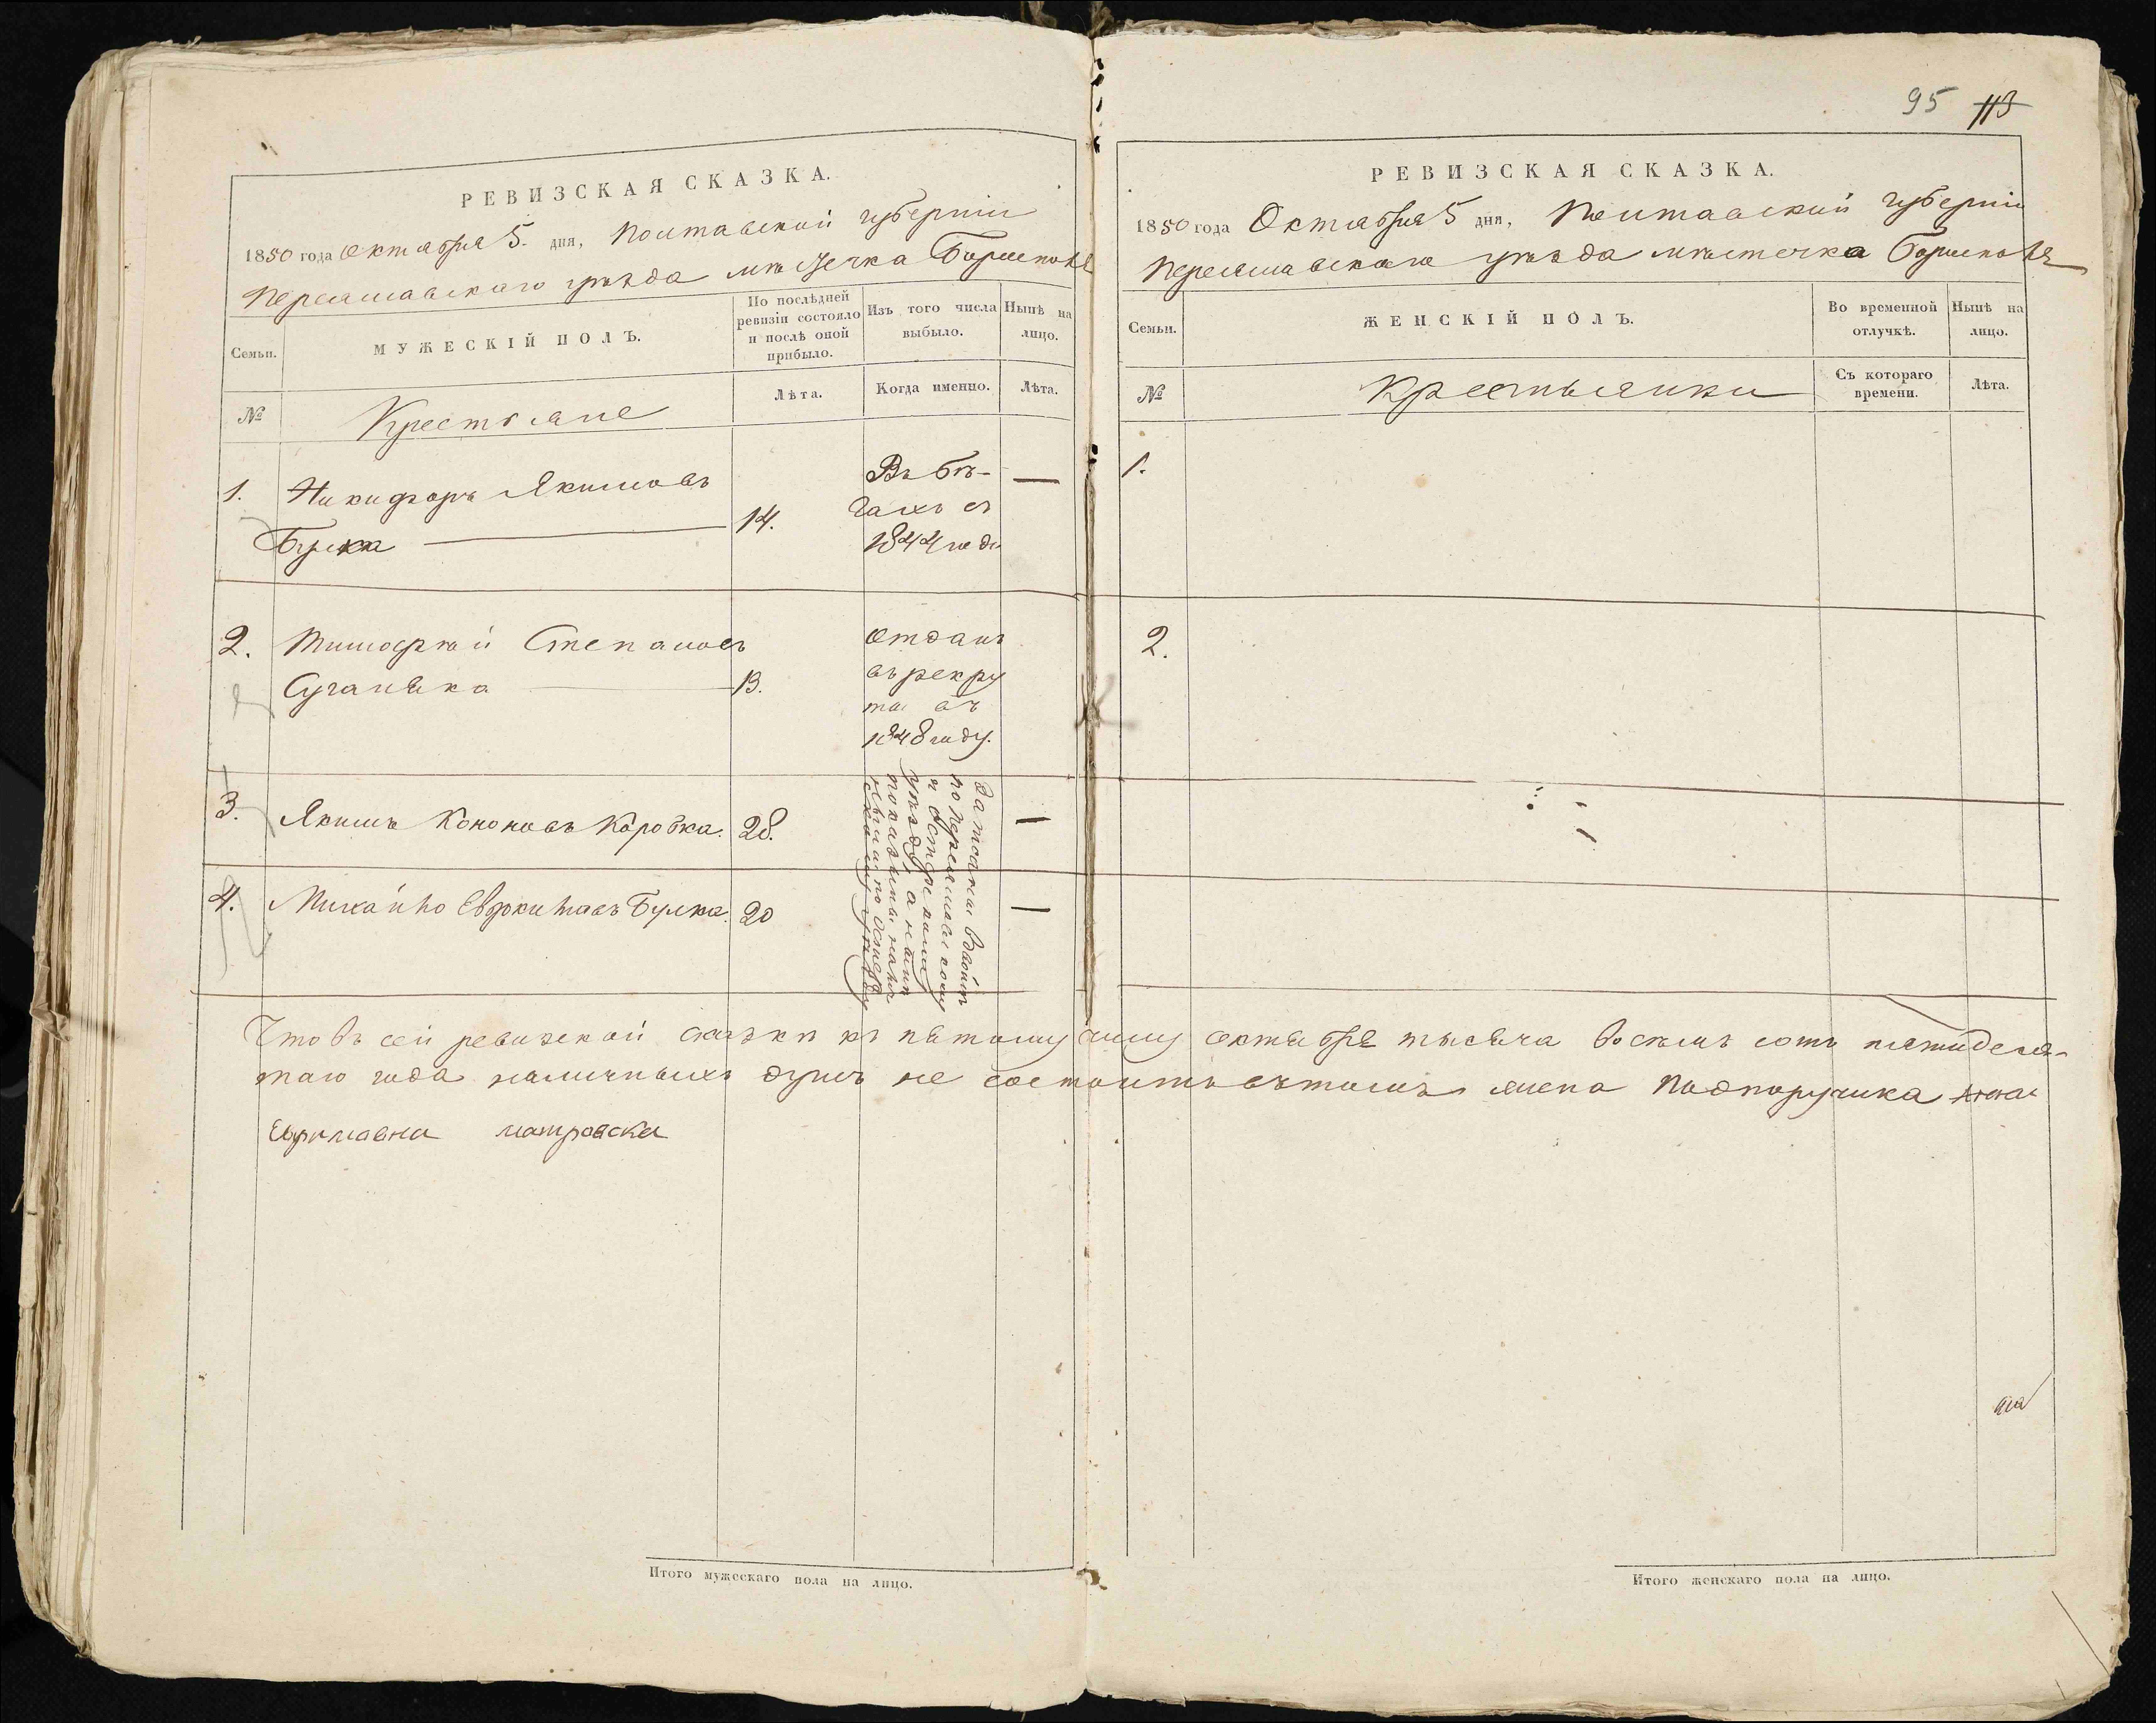 РЕВИЗСКАЯ СКАЗКА.
1850 года Октября 5. дня, Полтавской губерніи
Переяславскаго уѣзда мѣстечка Борисполя
Семьи.
МУЖЕСКІЙ ПОЛЪ.
По послѣдней ревизіи состояло и послѣ оной прибыло.
Изъ того числа выбыло.
Нынѣ на лицо.
№
Крестьяне
Лѣта.
Когда именно.
Лѣта.
1. Никифоръ Якимовъ
Бушка — 14.
Въ бѣ-
гахъ съ
1844 года
—
2. Тимофѣй Степановъ
Суганяка — 13.
Отданъ
въ рекру
ты въ
1848 году.
3. Якимъ Кононовъ Коробка. 28. —
4. Михайло Евфимовъ Бушка. 20 —
Записаны вдвойнѣ
по Переяславскому
и Остерскому
уѣзду а
показаны
Что въ сей ревизской сказки къ пятому числу октября тысяча восемь сотъ пятидеся-
таго года наличныхъ душъ не состоитъ въ томъ жена Подпоручика
95 113
РЕВИЗСКАЯ СКАЗКА.
1850 года Октября 5 дня, Полтавской губерніи
Переяславскаго уѣзда мѣстечка Борисполя
Семьи.
ЖЕНСКІЙ ПОЛЪ.
Во временной отлучкѣ.
Нынѣ на лицо.
№
Крестьянки
Съ котораго времени.
Лѣта.
1.
2.
Итого мужескаго пола на лицо.
Итого женскаго пола на лицо.